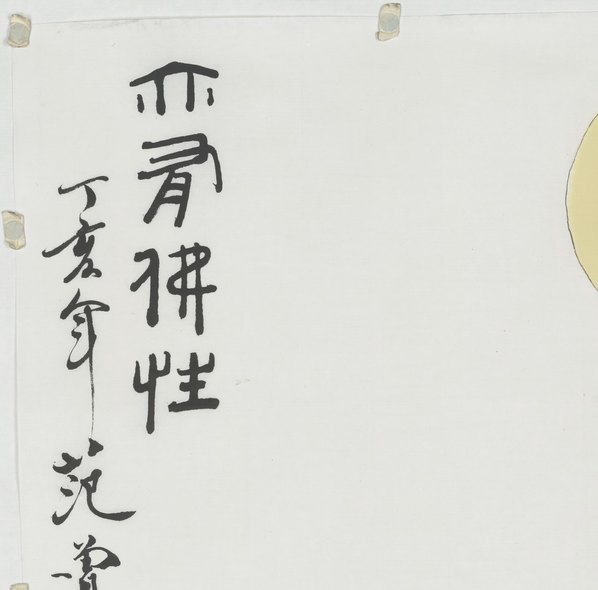 亦有佛性
丁亥年 范曾